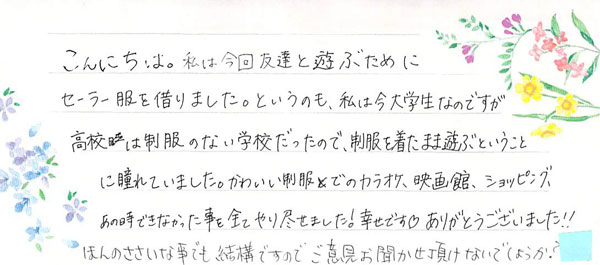 こんにちは。私は今回友達と遊ぶために
セーラー服を借りました。というのも、私は今大学生なのですが
高校時は制服のない学校だったので、制服を着たまま遊ぶということ
に憧れていました。かわいい制服でのカラオケ、映画館、ショッピング、
あの時できなかった事を全てやり尽せました!幸せです♡ ありがとうございました!!
ほんのささいな事でも結構ですのでご意見お聞かせ頂けないでしょうか?